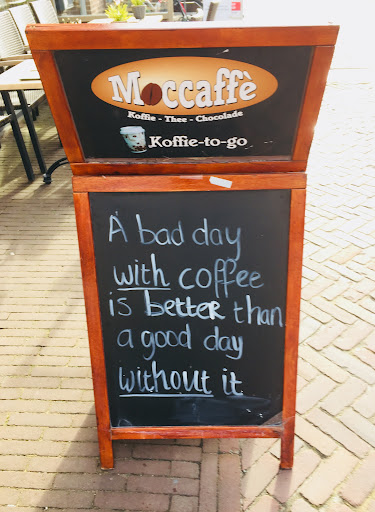 Moccaffè
Koffie - Thee - Chocolade
Koffie-to-go
A bad day
with coffee
is better than
a good day
without it